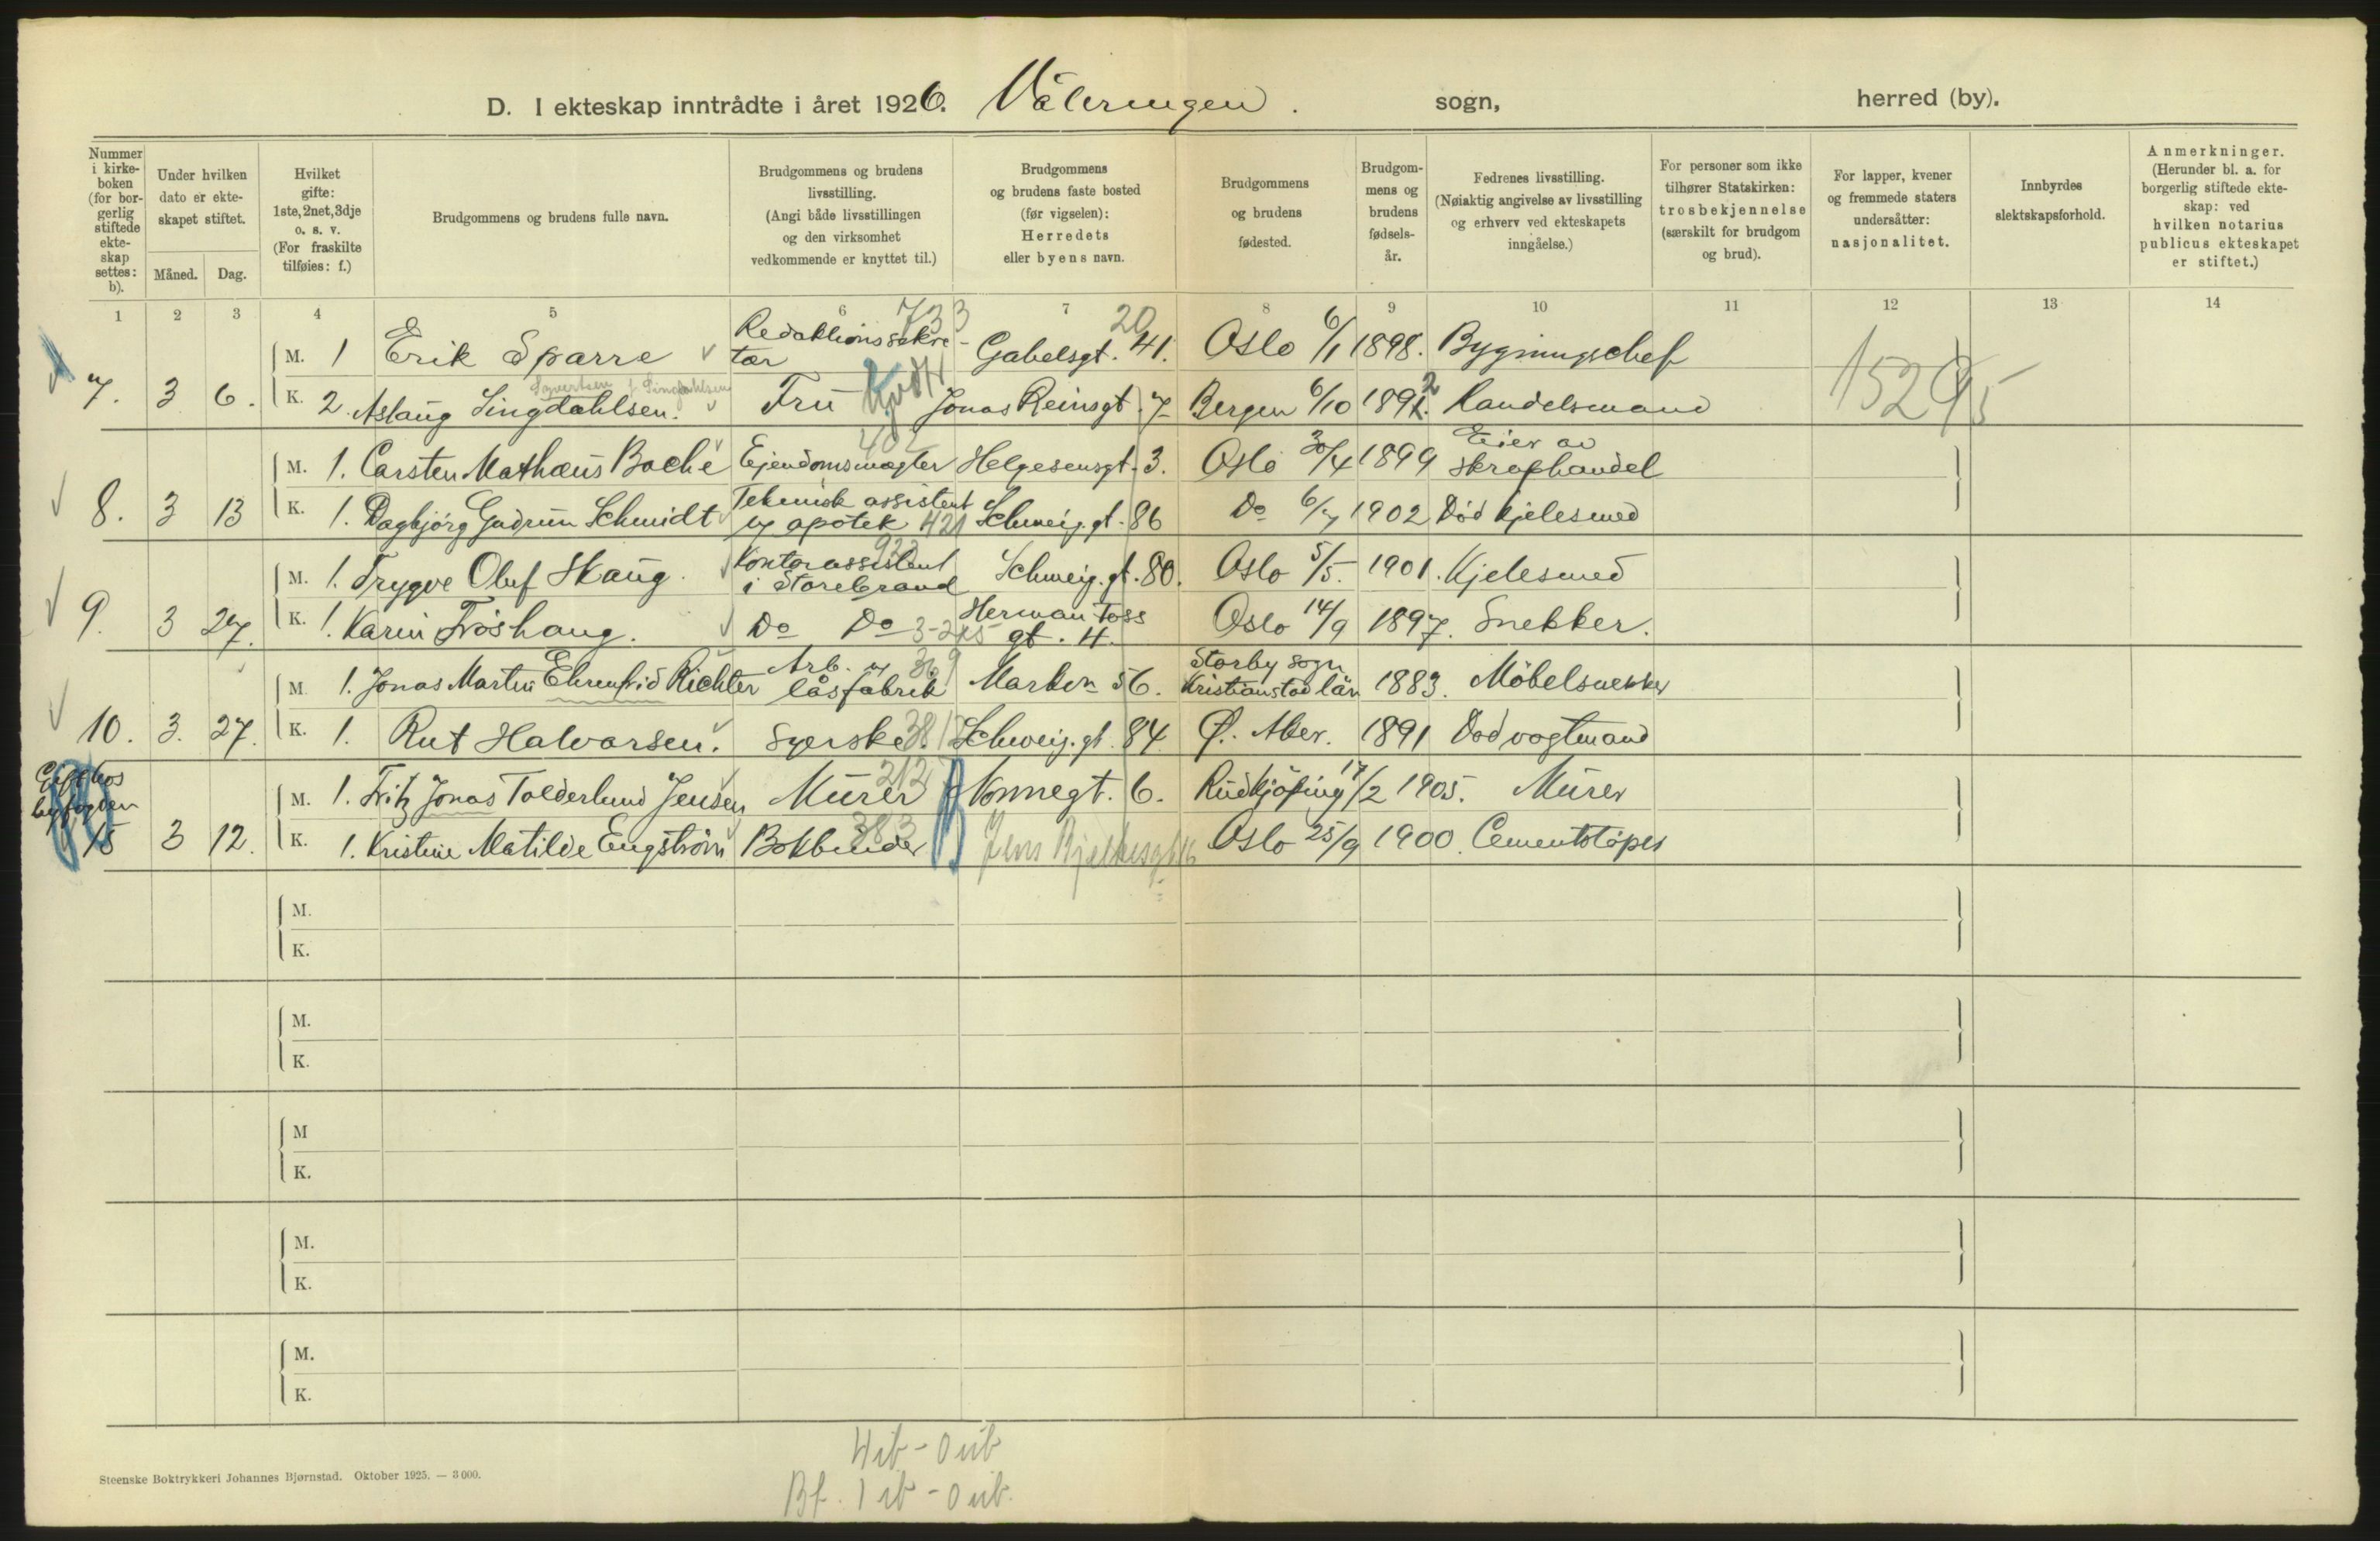 D. I ekteskap inntrådte i året 1926. Våleringen. sogn, herred (by).
Nummer i kirkeboken (for borgerlig stiftede ekteskap settes: b).
Under hvilken dato er ekteskapet stiftet.
Måned. Dag.
Hvilket gifte: 1ste, 2net, 3dje o. s. v. (For fraskilte tilføies: f.)
Brudgommens og brudens fulle navn.
Brudgommens og brudens livsstilling. (Angi både livsstillingen og den virksomhet vedkommende er knyttet til.)
Brudgommens og brudens faste bosted (før vigselen): Herredets eller byens navn.
Brudgommens og brudens fødested.
Brudgommens og brudens fødselsår.
Fedrenes livsstilling. (Nøiaktig angivelse av livsstilling og erhverv ved ekteskapets inngåelse.)
For personer som ikke tilhører Statskirken: trosbekjennelse (særskilt for brudgom og brud).
For lapper, kvener og fremmede staters undersåtter: nasjonalitet.
Innbyrdes slektskapsforhold.
Anmerkninger. (Herunder bl. a. for borgerlig stiftede ekteskap: ved hvilken notarius publicus ekteskapet er stiftet.)
1 2 3 4 5 6 7 8 9 10 11 12 13 14
733 20
M. 1 Erik Sparre Redaktionssekretær Gabelsgt. 41. Oslo 6/1 1898. Bygningschef
15295
7. 3 6. K. 2. Aslaug Singdahlsen. Fru Jonas Reinsgt. 7 Bergen 6/10 1892 Handelsmand
402
M. 1. Carsten Mathæus Baché Ejendomsmægler Helgesensgt. 3. Oslo 30/4 1899 Eier av skraphandel
8. 3 13 K. 1. Dagbjörg Gudrun Schmidt Teknisk assistent og apotek 421 Schweig.gt. 86 Do 6/7 1902 Död kjelesmed
M. 1. Trygve Oluf Skaug. Kontorassistent i Storebrand Schweig.gt. 80. Oslo 5/5. 1901. Kjelesmed
9. 3 27. K. 1. Karin Fröshaug. Do Do Herman Foss gt. 4. Oslo 14/9 1897. Snekker.
M. 1. Jonas Martin Ehrenfrid Richter Arb. og låsfabrik 369 Markvn 56. Storby sogn Kristianstad län 1883. Möbelsnekker
10. 3. 27. K. 1. Rut Halvorsen. Syerske 381 Schweig.gt. 84 Ø. Aker. 1891 Död vogtmand
Gift hos byfogden
M. 1. Fritz Jonas Tolderlund Jensen Murer 212 Nonnegt. 6. Rudkjöping 17/2 1905. Murer
15 3 12. K. 1. Kristine Matilde Engström Bokbinder 383 Jens Bjelkesgt. 16 Oslo 25/9 1900. Cementstöper
M.
K.
M.
K.
M
K.
M.
K.
M.
K.
4 ib - 0 uib
Bf. 1 ib - 0 uib.
Steenske Boktrykkeri Johannes Bjørnstad. Oktober 1925. — 3 000.